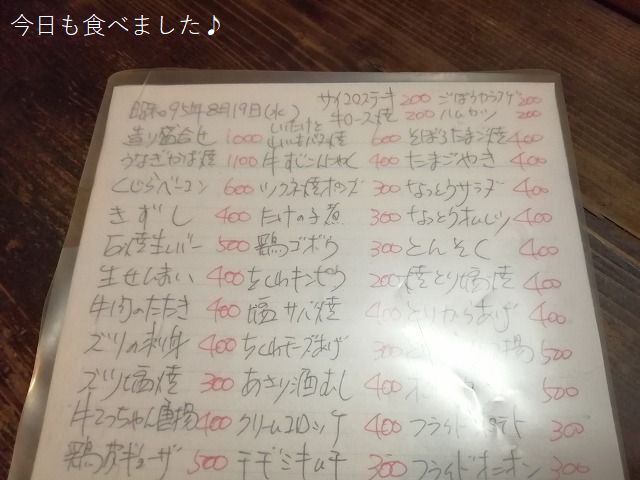 今日も食べました♪
昭和95年8月19日(水)
サイコロステーキ 200 ごぼうからアゲ 200
牛ロース焼 200 ハムカツ 200
造り盛合せ 1000 しいたけと 600 そぼろたまご焼 400
うなぎかば焼 1100 牛すじこんにゃく 400 たまごやき 400
くじらベーコン 600 ツクネ焼 300 なっとうサラダ 400
きずし 400 たけの子煮 300 なっとうオムレツ 400
石焼生レバー 500 鶏ゴボウ 300 とんそく 400
生せんまい 400 ちくわキンピラ 200 焼とり塩焼 400
牛肉のたたき 400 塩サバ焼 400 とりからあげ 400
ズリの刺身 400 ちくわチーズあげ 300 500
ズリ塩焼 300 あさり酒むし 400 500
牛てっちゃん唐揚 400 クリームコロッケ 400 フライドポテト 300
鶏皮ギョーザ 500 チヂミキムチ 300 フライドオニオン 300